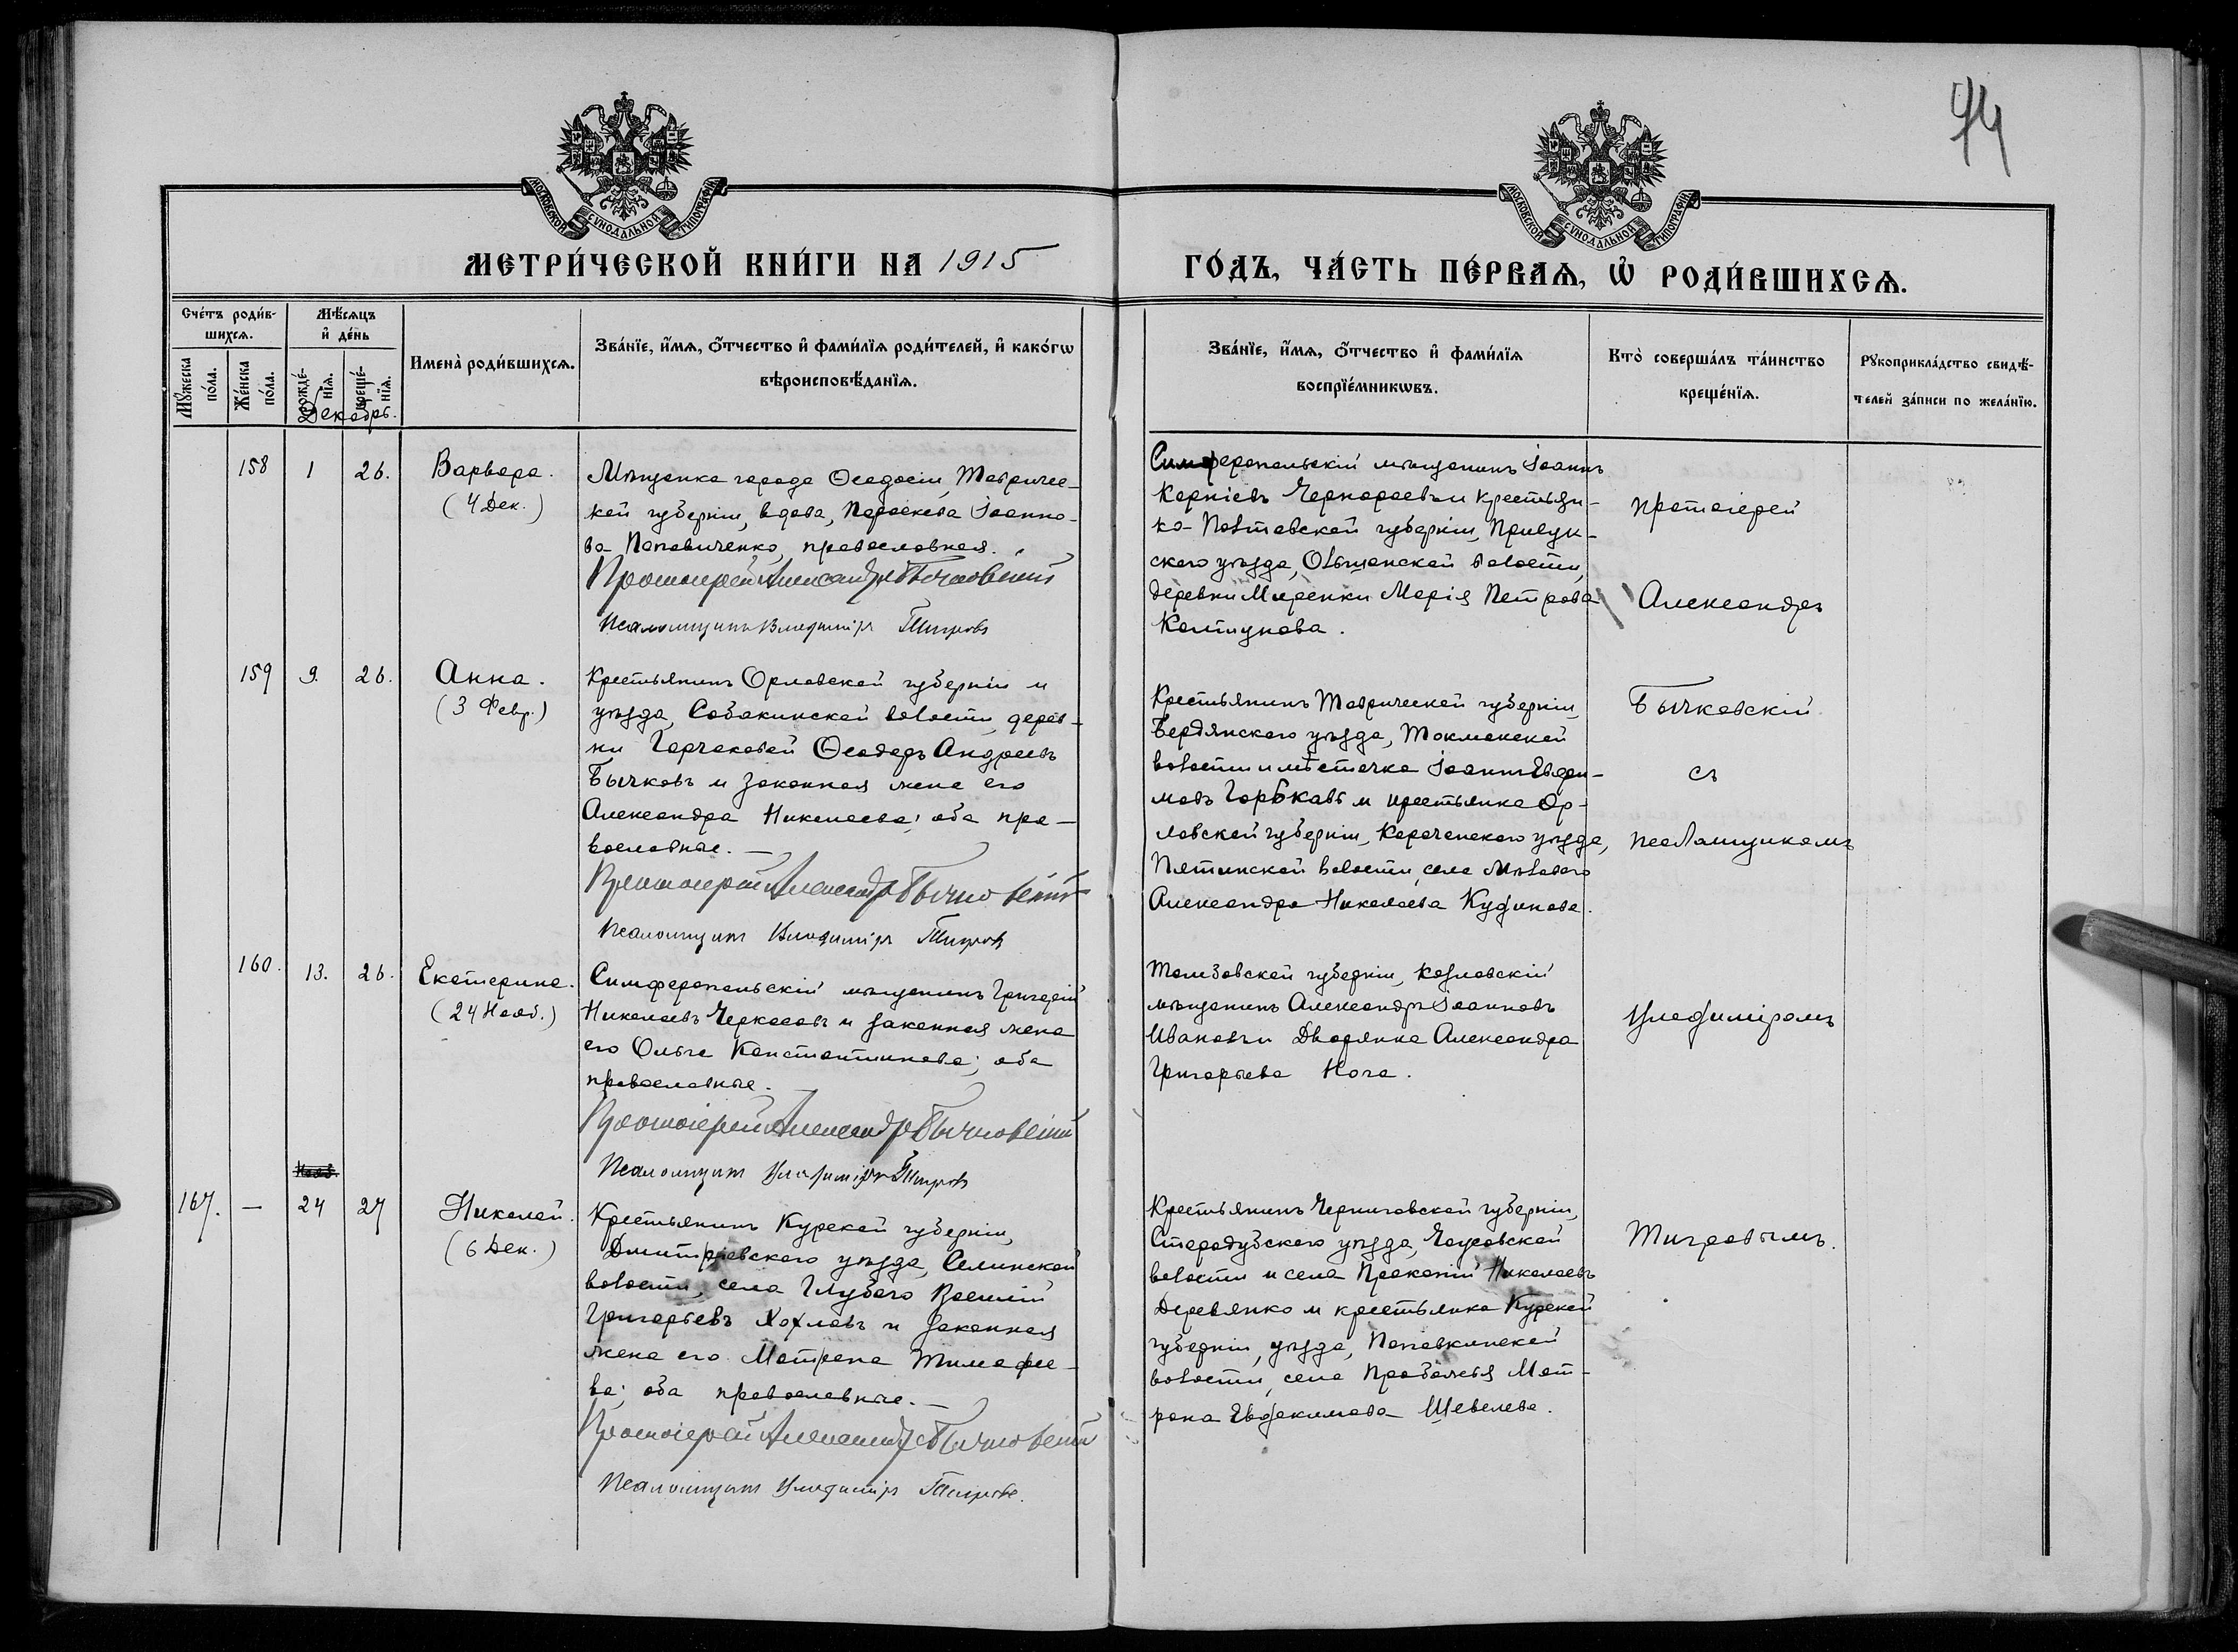 94
МОСКОВСКОЙ СѴНОДАЛЬНОЙ ТИПОГРАФІИ
МОСКОВСКОЙ СѴНОДАЛЬНОЙ ТИПОГРАФІИ
МЕТРИ́ЧЕСКОЙ КНИ́ГИ НА 1915
ГО́ДЪ, ЧА́СТЬ ПЕ́РВАѦ, Ѡ҆ РОДИ́ВШИХСѦ.
Сче́тъ роди́в-
шихсѧ.
Мꙋ́жеска по́ла.
Же́нска по́ла.
Мѣ́сѧцъ
и҆ де́нь
рожде́-нїѧ.
креще́-нїѧ.
Декабрь.
Имена̀ роди́вшихсѧ.
Зва́нїе, и҆́мѧ, ѻ҆́тчество и҆ фами́лїѧ роди́телей, и҆ како́гѡ
вѣроисповѣ́данїѧ.
Зва́нїе, и҆́мѧ, ѻ҆́тчество и҆ фами́лїѧ
воспрїе́мникѡвъ.
Кто̀ соверша́лъ та́инство
креще́нїѧ.
Рꙋкоприкла́дство свидѣ́-
телей за́писи по жела́нїю.
158
1
26.
Варвара.
(4 Дек.)
Мѣщанка города Ѳеодосіи, Тавричес-
кой губерніи, вдова, Параскева Іоанно-
ва Поповиченко, православная.
Протоіерей Александръ Бычковскій
Псаломщикъ Владиміръ Тигровъ
Симферопольскій мѣщанинъ Іоаннъ
Карпіевъ и крестьян-
ка Полтавской губерніи, Прилук-
скаго уѣзда, Ольшанской волости,
деревни Марія Петрова
Колтунова.
Протоіерей
Александръ
159
9.
26.
Анна.
(3 Февр.)
Крестьянинъ Орловской губерніи и
уѣзда, Собакинской волости, дерев-
ни Горчаковой Ѳеодоръ Андреевъ
Бычковъ и законная жена его
Александра Николаева; оба пра-
вославные.
Протоіерей Александръ Бычковскій
Псаломщикъ Владиміръ Тигровъ
Крестьянинъ Таврической губерніи,
Бердянскаго уѣзда, Токмакской
волости и мѣстечка Іоаннъ Евфи-
мовъ Горбковъ и крестьянка Ор-
ловской губерніи, Карачевскаго уѣзда,
волости, села
Александра Николаева Кудинова.
Бычковскій
съ
псаломщикомъ
160.
13.
26.
Екатерина.
(24 Нояб.)
Симферопольскій мѣщанинъ Григорій
Николаевъ Черкасовъ и законная жена
его Ольга Константинова; оба
православные.
Протоіерей Александръ Бычковскій
Псаломщикъ Владиміръ Тигровъ
Тамбовской губерніи, Козловскій
мѣщанинъ Александръ Іоанновъ
Ивановъ и Дворянка Александра
Григорьева Нога.
Владиміромъ
Нояб.
167.
—
24
27
Николай.
(6 Дек.)
Крестьянинъ Курской губерніи,
Дмитріевскаго уѣзда, Селинской
волости, села Глубого Василій
Григорьевъ Хохловъ и законная
жена его Матрена Тимофее-
ва; оба православные.
Протоіерей Александръ Бычковскій
Псаломщикъ Владиміръ Тигровъ.
Крестьянинъ Черниговской губерніи,
Стародубскаго уѣзда,
волости и села Прокопій Николаевъ
Деревянко и крестьянка Курской
губерніи, уѣзда,
волости, села Мат-
рона Евдокимова Шевелева.
Тигровымъ.